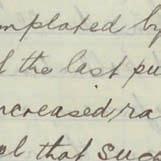 mplated by
f the last pu
ncreased ra
el that suc